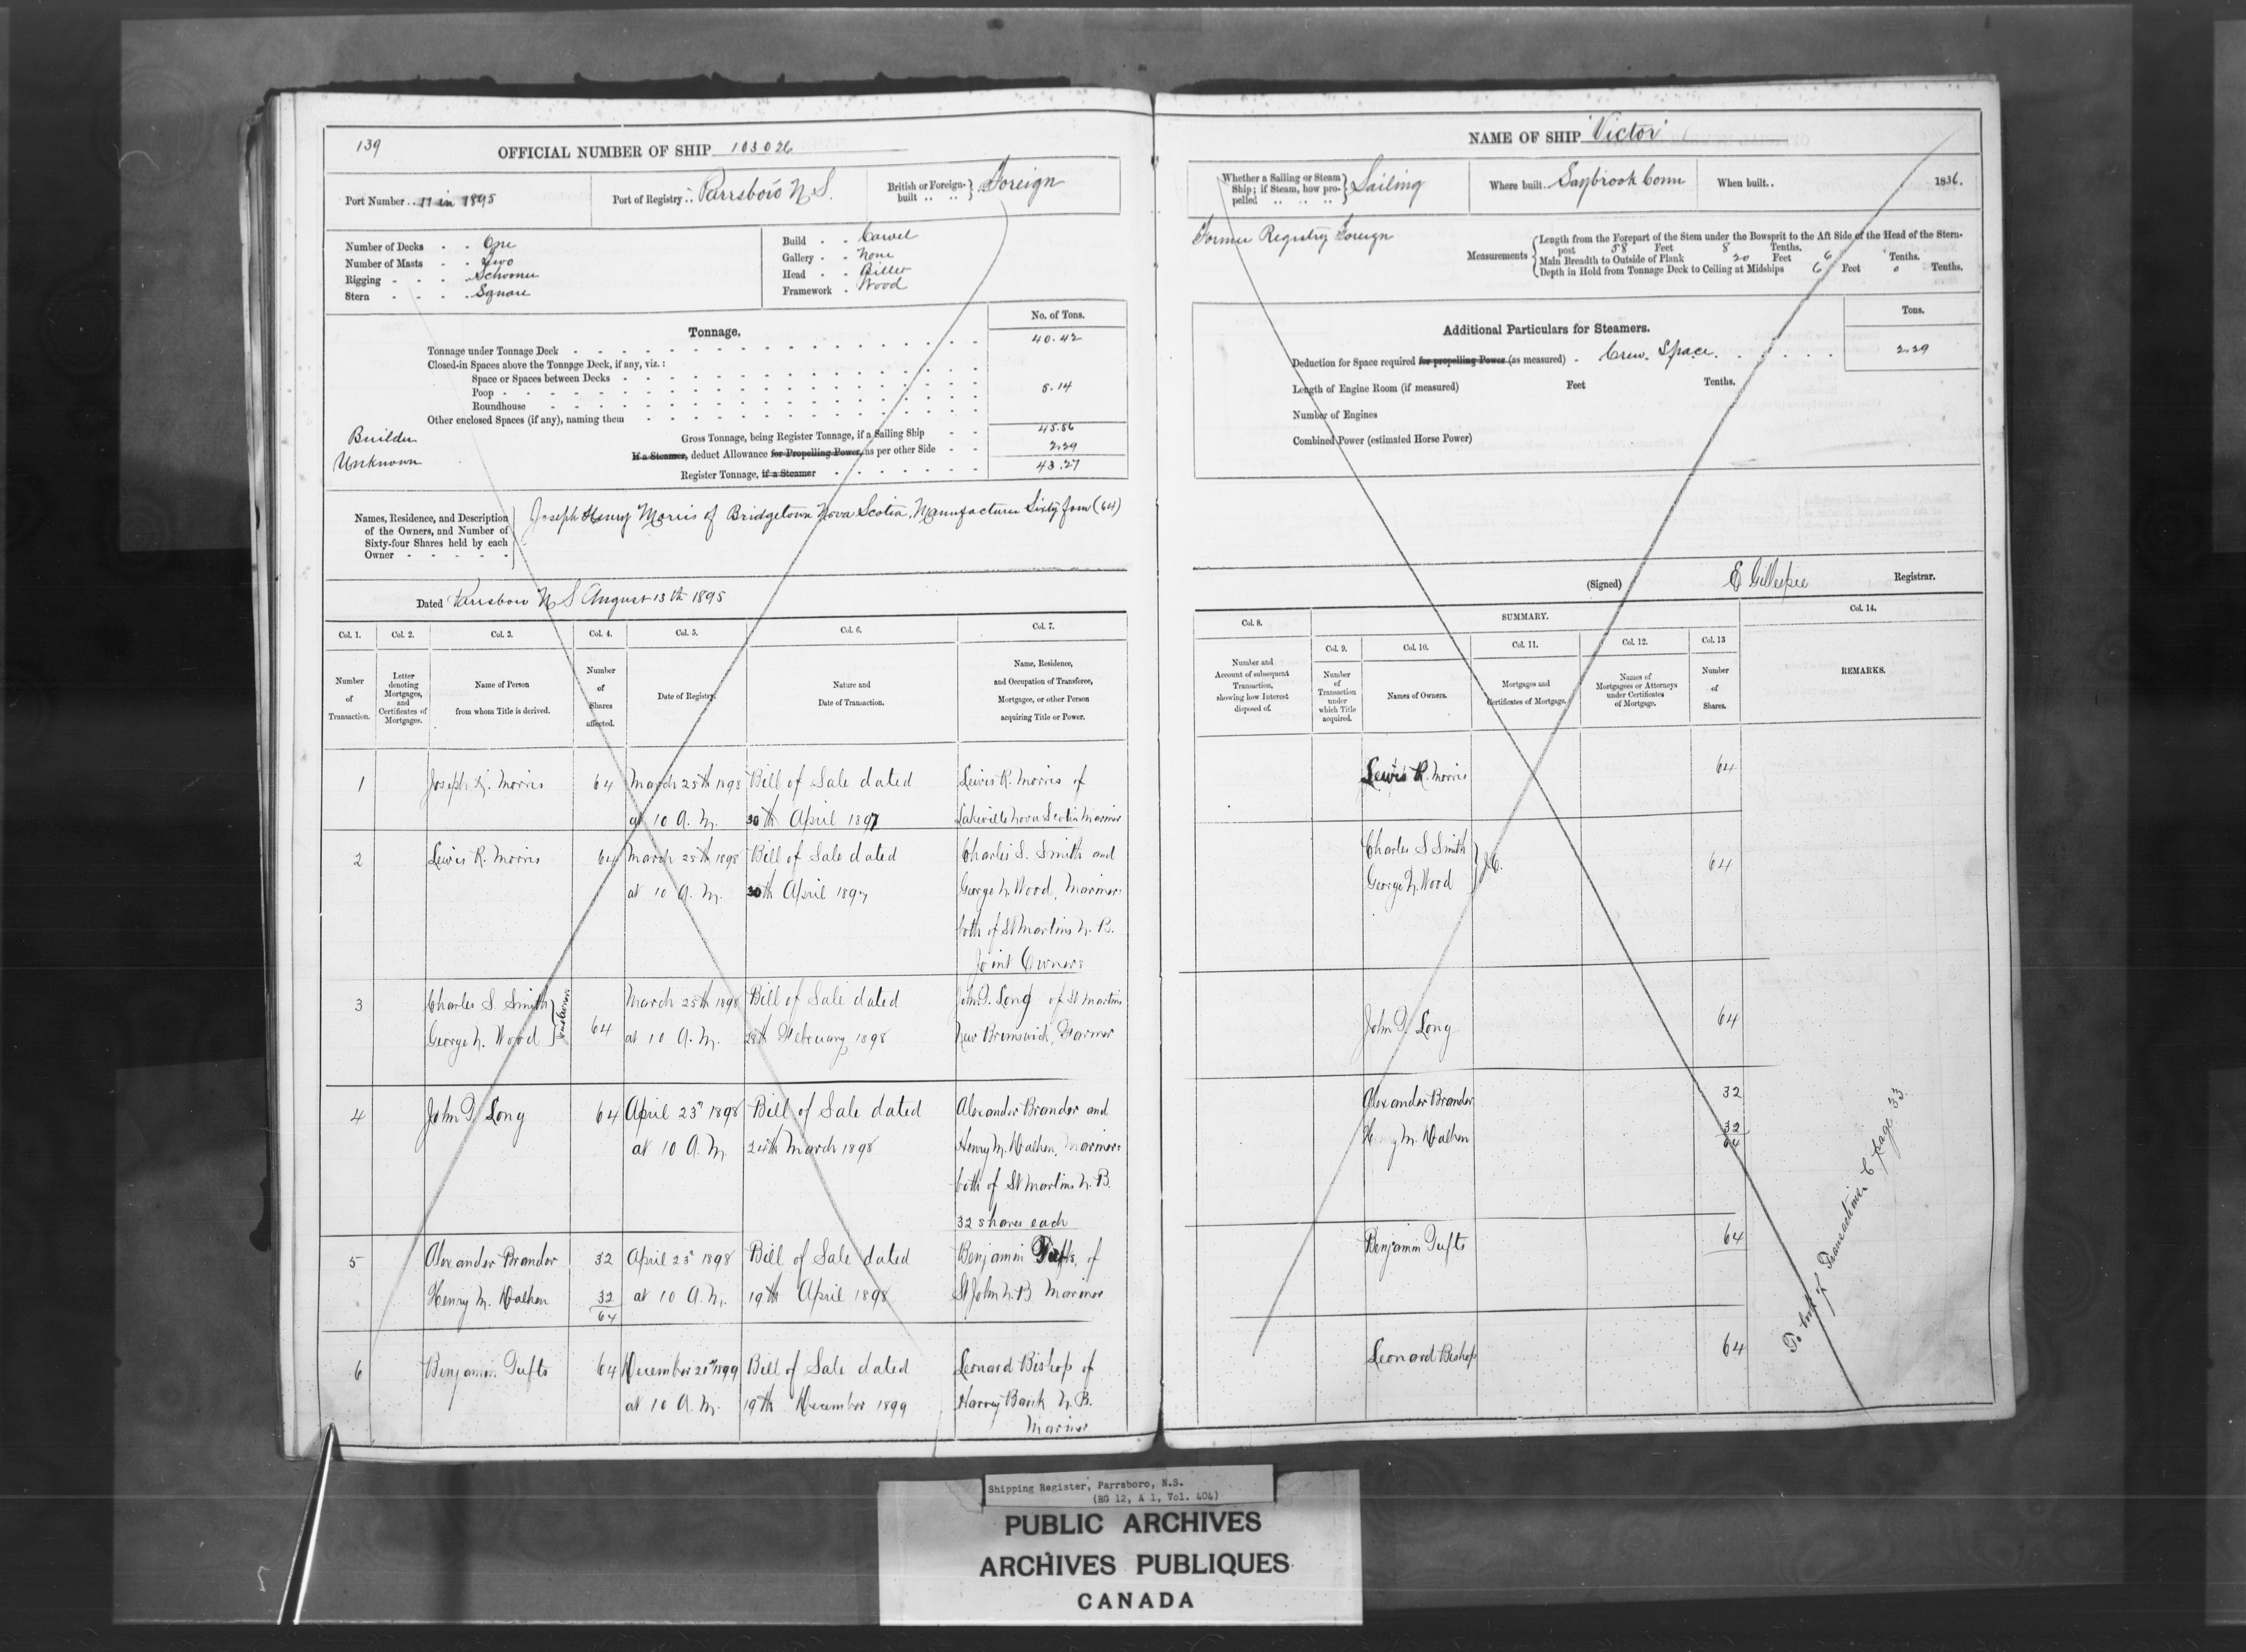 139
OFFICIAL NUMBER OF SHIP 103026
Port Number .. 11 in 1895
Port of Registry .. Parrsboro N S.
British or Foreign-built .. .. } Foreign
Number of Decks - - One
Number of Masts - - Two
Rigging - - - Schooner
Stern - - - - Square
Build - - Carvel
Gallery - - None
Head - - Billet
Framework - Wood
Tonnage.
No. of Tons.
Tonnage under Tonnage Deck 40.42
Closed-in Spaces above the Tonnage Deck, if any, viz.:
Space or Spaces between Decks
Poop 5.14
Roundhouse
Other enclosed Spaces (if any), naming them
Builder
Unknown
Gross Tonnage, being Register Tonnage, if a Sailing Ship - - 45.56
If a Steamer, deduct Allowance for Propelling Power, as per other Side - - 2.29
Register Tonnage, if a Steamer 43.27
Names, Residence, and Description
of the Owners, and Number of
Sixty-four Shares held by each
Owner
Joseph Henry Morris of Bridgetown Nova Scotia, Manufacturer Sixty four (64)
Dated Parrsboro N S August 13th 1895
Col. 1. Col. 2. Col. 3. Col. 4. Col. 5. Col. 6. Col. 7.
Number of Transaction.
Letter denoting Mortgages, and Certificates of Mortgages.
Name of Person from whom Title is derived.
Number of Shares affected.
Date of Registry.
Nature and Date of Transaction.
Name, Residence, and Occupation of Transferee, Mortgagee, or other Person acquiring Title or Power.
1 Joseph H. Morris 64 March 25th 1898 Bill of Sale dated Lewis R. Morris of
at 10 A. M. 30th April 1897 Lakeville Nova Scotia Mariner
2 Lewis R. Morris 64 March 25th 1898 Bill of Sale dated Charles S. Smith and
at 10 A. M. 30th April 1897 George N. Wood, Mariners
both of St Martins N. B.
Joint Owners
3 Charles S. Smith March 25th 1898 Bill of Sale dated John F. Long of St Martins
George N. Wood } Joint Owners 64 at 10 A. M. 28th February 1898 New Brunswick, Farmer
4 John F. Long 64 April 23d 1898 Bill of Sale dated Alexander Brander and
at 10 A. M. 24th March 1898 Henry M. Walken, Mariners
both of St Martins N. B.
32 shares each
5 Alexander Brander 32 April 23d 1898 Bill of Sale dated Benjamin Tufts, of
Henry M. Walken 32 at 10 A. M. 19th April 1898 St John N. B Mariner
64
6 Benjamin Tufts 64 December 21st 1899 Bill of Sale dated Leonard Bishop of
at 10 A. M. 19th December 1899 Harvey Bank N. B.
Mariner
NAME OF SHIP "Victor"
Whether a Sailing or Steam Ship; if Steam, how propelled } Sailing
Where built .. Saybrook Conn
When built .. 1836.
Former Registry Foreign
Measurements
Length from the Forepart of the Stem under the Bowsprit to the Aft Side of the Head of the Stern-
post 58 Feet 8 Tenths.
Main Breadth to Outside of Plank 20 Feet 6 Tenths.
Depth in Hold from Tonnage Deck to Ceiling at Midships 6 Feet 0 Tenths.
Additional Particulars for Steamers.
Tons.
Deduction for Space required for propelling Power (as measured) - Crew Space. 2.29
Length of Engine Room (if measured) Feet Tenths.
Number of Engines
Combined Power (estimated Horse Power)
(Signed) E Gillespie Registrar.
Col. 8. SUMMARY. Col. 14.
Col. 9. Col. 10. Col. 11. Col. 12. Col. 13
Number and Account of subsequent Transaction, showing how Interest disposed of.
Number of Transaction under which Title acquired.
Names of Owners.
Mortgages and Certificates of Mortgage.
Names of Mortgagees or Attorneys under Certificates of Mortgage.
Number of Shares.
REMARKS.
Lewis R. Morris 64
Charles S Smith
George N. Wood } J.O. 64
John F. Long 64
Alexander Brander 32
Henry M. Walken 32
64
Benjamin Tufts 64
Leonard Bishop 64
Transactions C page 33
Shipping Register, Parrsboro, N.S.
(RG 12, A 1, Vol. 404)
PUBLIC ARCHIVES
ARCHIVES PUBLIQUES
CANADA